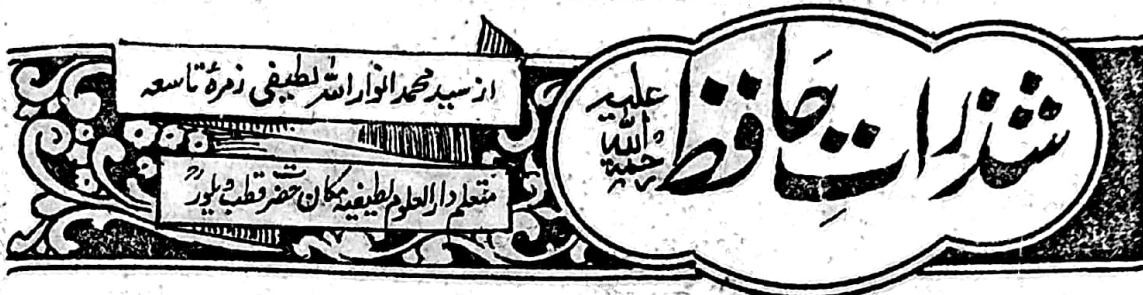 شذراتِ حافظ رحمۃ اللہ علیہ
از سید محمد انوار اللہ لطیفی زمرۂ تاسعہ
متعلم دار العلوم لطیفیہ مکان حضرت قطب ویلورؒ